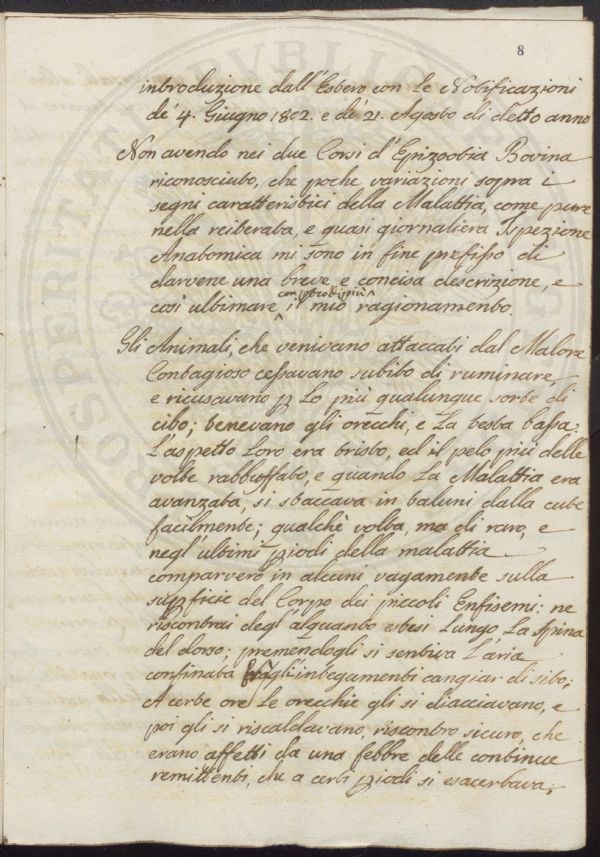 8
introduzione dall'Estero con le Notificazioni
de' 4. Giugno 1802. e de' 21. Agosto di detto anno
Non avendo nei due Corsi d'Epizootia Bovina
riconosciuto, che poche variazioni sopra i
segni caratteristici della Malattia, come pure
nella reiterata, e quasi giornaliera Ispezione
Anatomica mi sono in fine prefisso di
darvene una breve e concisa descrizione, e
così ultimare, il mio ragionamento.
Gli Animali, che venivano attaccati dal Malore
Contagioso cessavano subito di ruminare,
e ricusavano p lo più qualunque sorte di
cibo; tenevano gli orecchi, e la testa bassa;
L'aspetto loro era tristo, ed il pelo più delle
volte rabbuffato, e quando la Malattia era
avanzata, si staccava in taluni dalla cute
facilmente; qualche volta, ma di raro, e
negl'ultimi piodi della malattia
comparvero in alcuni vagamente sulla
supficie del Corpo dei piccoli Enfisemi: ne
riscontrai degl'alquanto estesi lungo la spina
del dorso; premendogli si sentiva l'aria
confinata gl'integamenti cangiar di sito;
A certe ore le orecchie gli si diacciavano, e
poi gli si riscaldavano, riscontro sicuro, che
erano affetti da una febbre delle continue
remittenti, che a certi piodi si esacerbava;
PUBLIC
PROSPERITATI